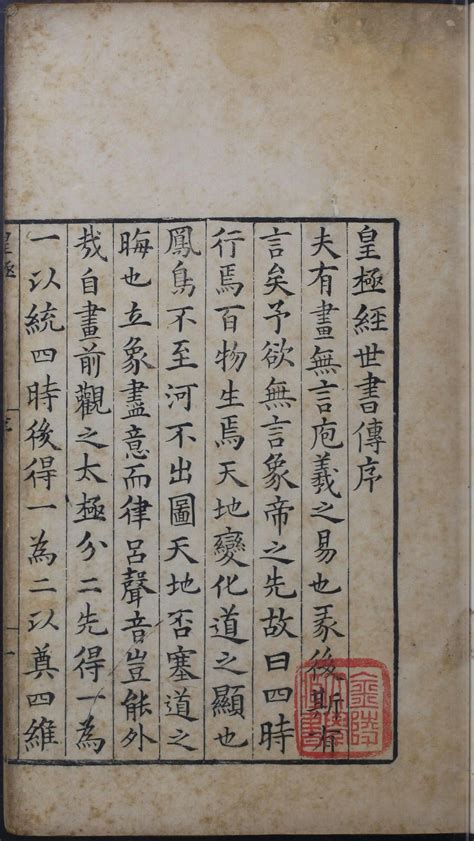 皇極經世書傳序
夫有畫無言庖羲之易也彖後斯有
言矣予欲無言象帝之先故曰四時
行焉百物生焉天地變化道之顯也
鳳鳥不至河不出圖天地否塞道之
晦也立象盡意而律呂聲音豈能外
哉自畫前觀之太極分二先得一為
一以統四時後得一為二以奠四維
皇極
序
一
金陵